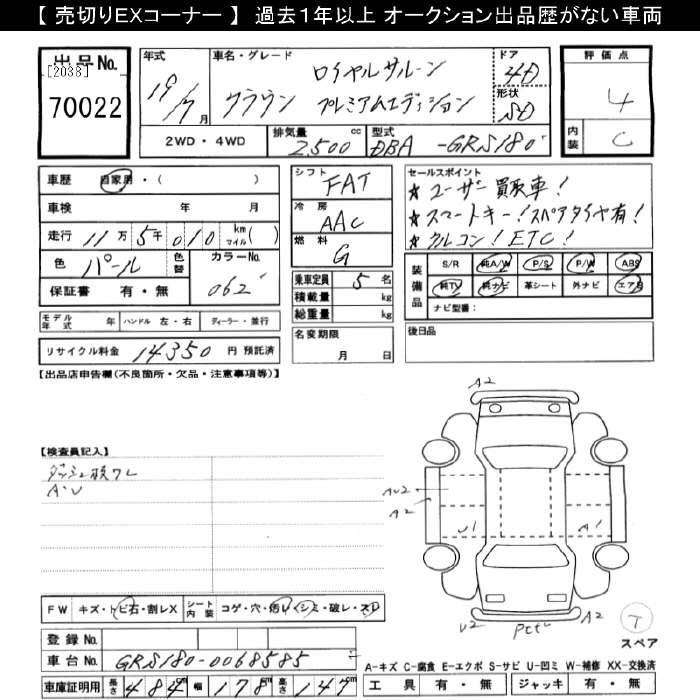 【 売切りEXコーナー 】 過去１年以上 オークション出品歴がない車両
出品No.
[2038]
70022
年式
19/7月
車名・グレード
ロイヤルサルーン
クラウン プレミアムエディション
ドア
4D
形状
SD
評価点
4
内装
C
2WD・4WD
排気量 2,500 cc
型式 DBA -GRS180
車歴 自家用・( )
車検 年 月
走行 11万5千010 km マイル( )
色 パール
色替
カラーNo. 062
保証書 有・無
モデル年式 年
ハンドル 左・右
ディーラー・並行
リサイクル料金 14350 円 預託済
シフト
FAT
冷房
AAC
燃料
G
乗車定員 5 名
積載量 kg
総重量 kg
名変期限
月 日
セールスポイント
★ユーザー買取車!
★スマートキー!スペアタイヤ有!
★クルコン!ETC!
装備品
S/R 純A/W P/S P/W ABS
純TV 純ナビ 革シート 外ナビ エアB
ナビ型番:
後日品
【出品店申告欄(不良箇所・欠品・注意事項等)】
【検査員記入】
A・U
FW キズ・トビ石・割レX
シート内装 コゲ・穴・汚レ・シミ・破レ・スレ
登録No.
車台No. GRS180-0068585
車庫証明用 長さ 484 cm 幅 178 cm 高さ 147 cm
A2
AU2
A2
U1
A1
U2
A2
T
スペア
A-キズ C-腐食 E-エクボ S-サビ U-凹ミ W-補修 XX-交換済
工具 有・無 ジャッキ 有・無